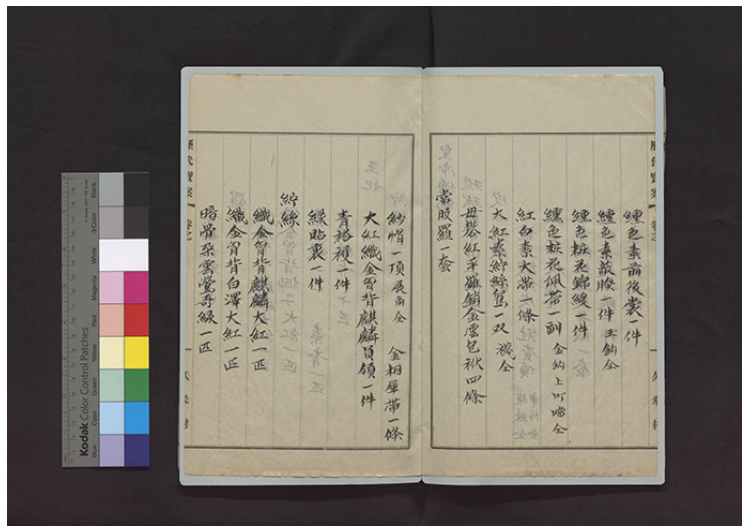 纁色素前後裳一件
纁色素蔽膝一件 玉鈎全
纁色粧花錦綬一件
纁色粧花佩帶一副 金鈎上叮噹全
紅白素大帶一條
大紅素紵絲舄一双 襪全
丹礬紅平羅銷金雲包袱四條
常服羅一套
紗帽一頂 展角全 金相犀帶一條
大紅織金胷背麒麟員領一件
青褡𧞤一件
綠貼裏一件
紵絲
織金胷背麒麟大紅一匹
織金胷背白澤大紅一匹
暗骨朶雲鶯哥綠一匹
歷代寶案
Kodak Color Control Patches
Blue
Cyan
Green
Yellow
Red
Magenta
White
3/Color
Black